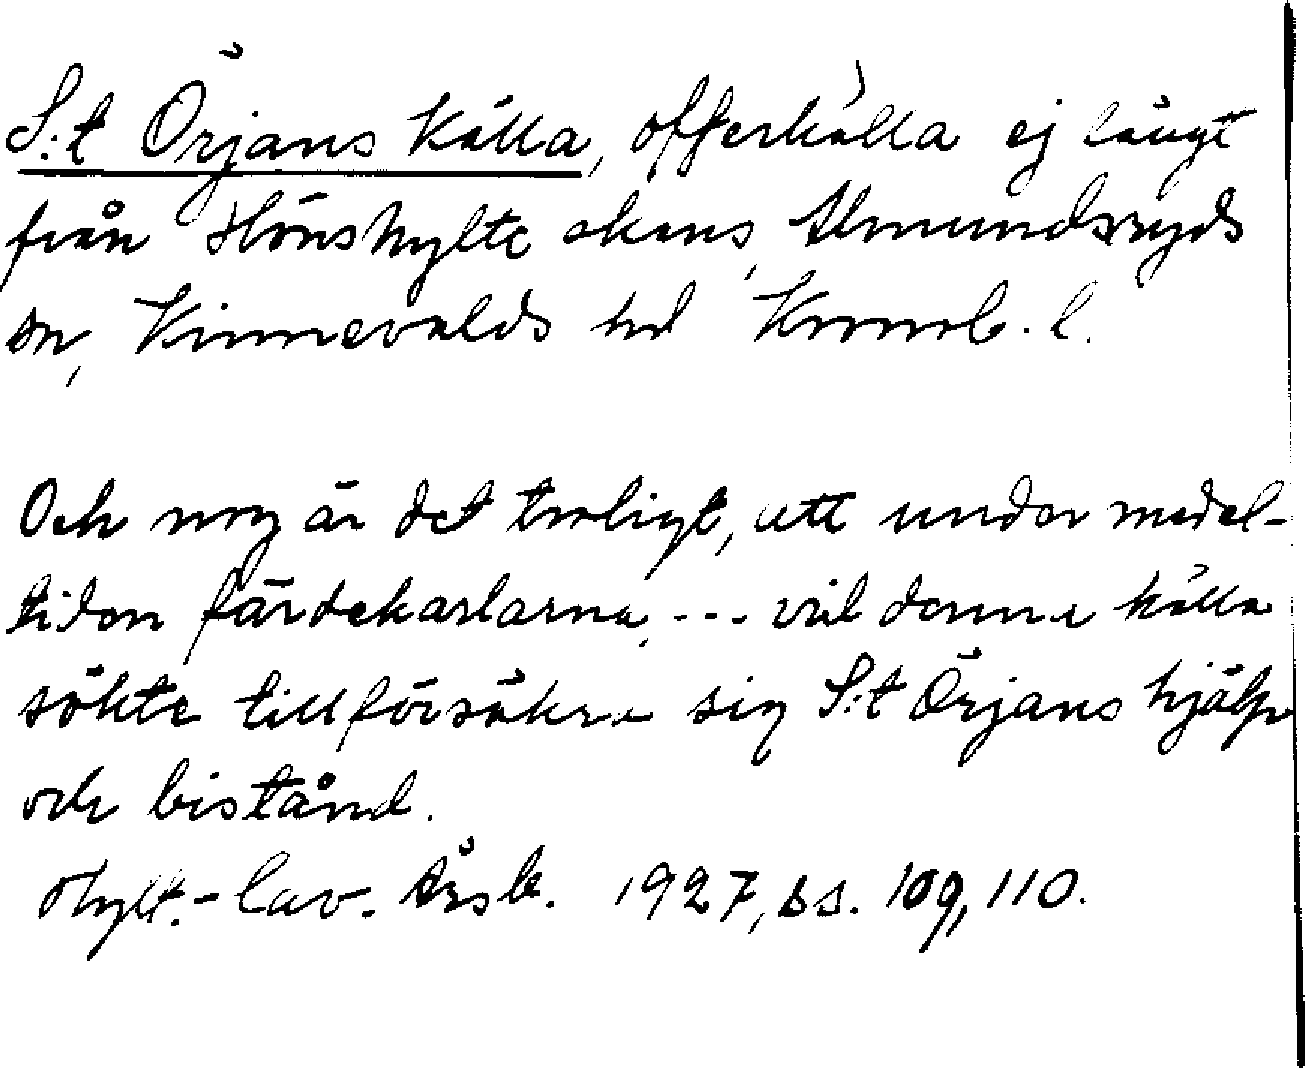 S:t Örjans källa, offerkälla ej långt
från Hönshylte skans, Almundsryds
sn, Kinnevalds hd Kronob. l.
Och nog är det troligt, att under medel-
tiden färdekarlarna, --- vid denna källa
sökte tillförsäkra sig S:t Örjans hjälp
och bistånd.
Hylt.-Cav. Årsb. 1927, ss. 109, 110.